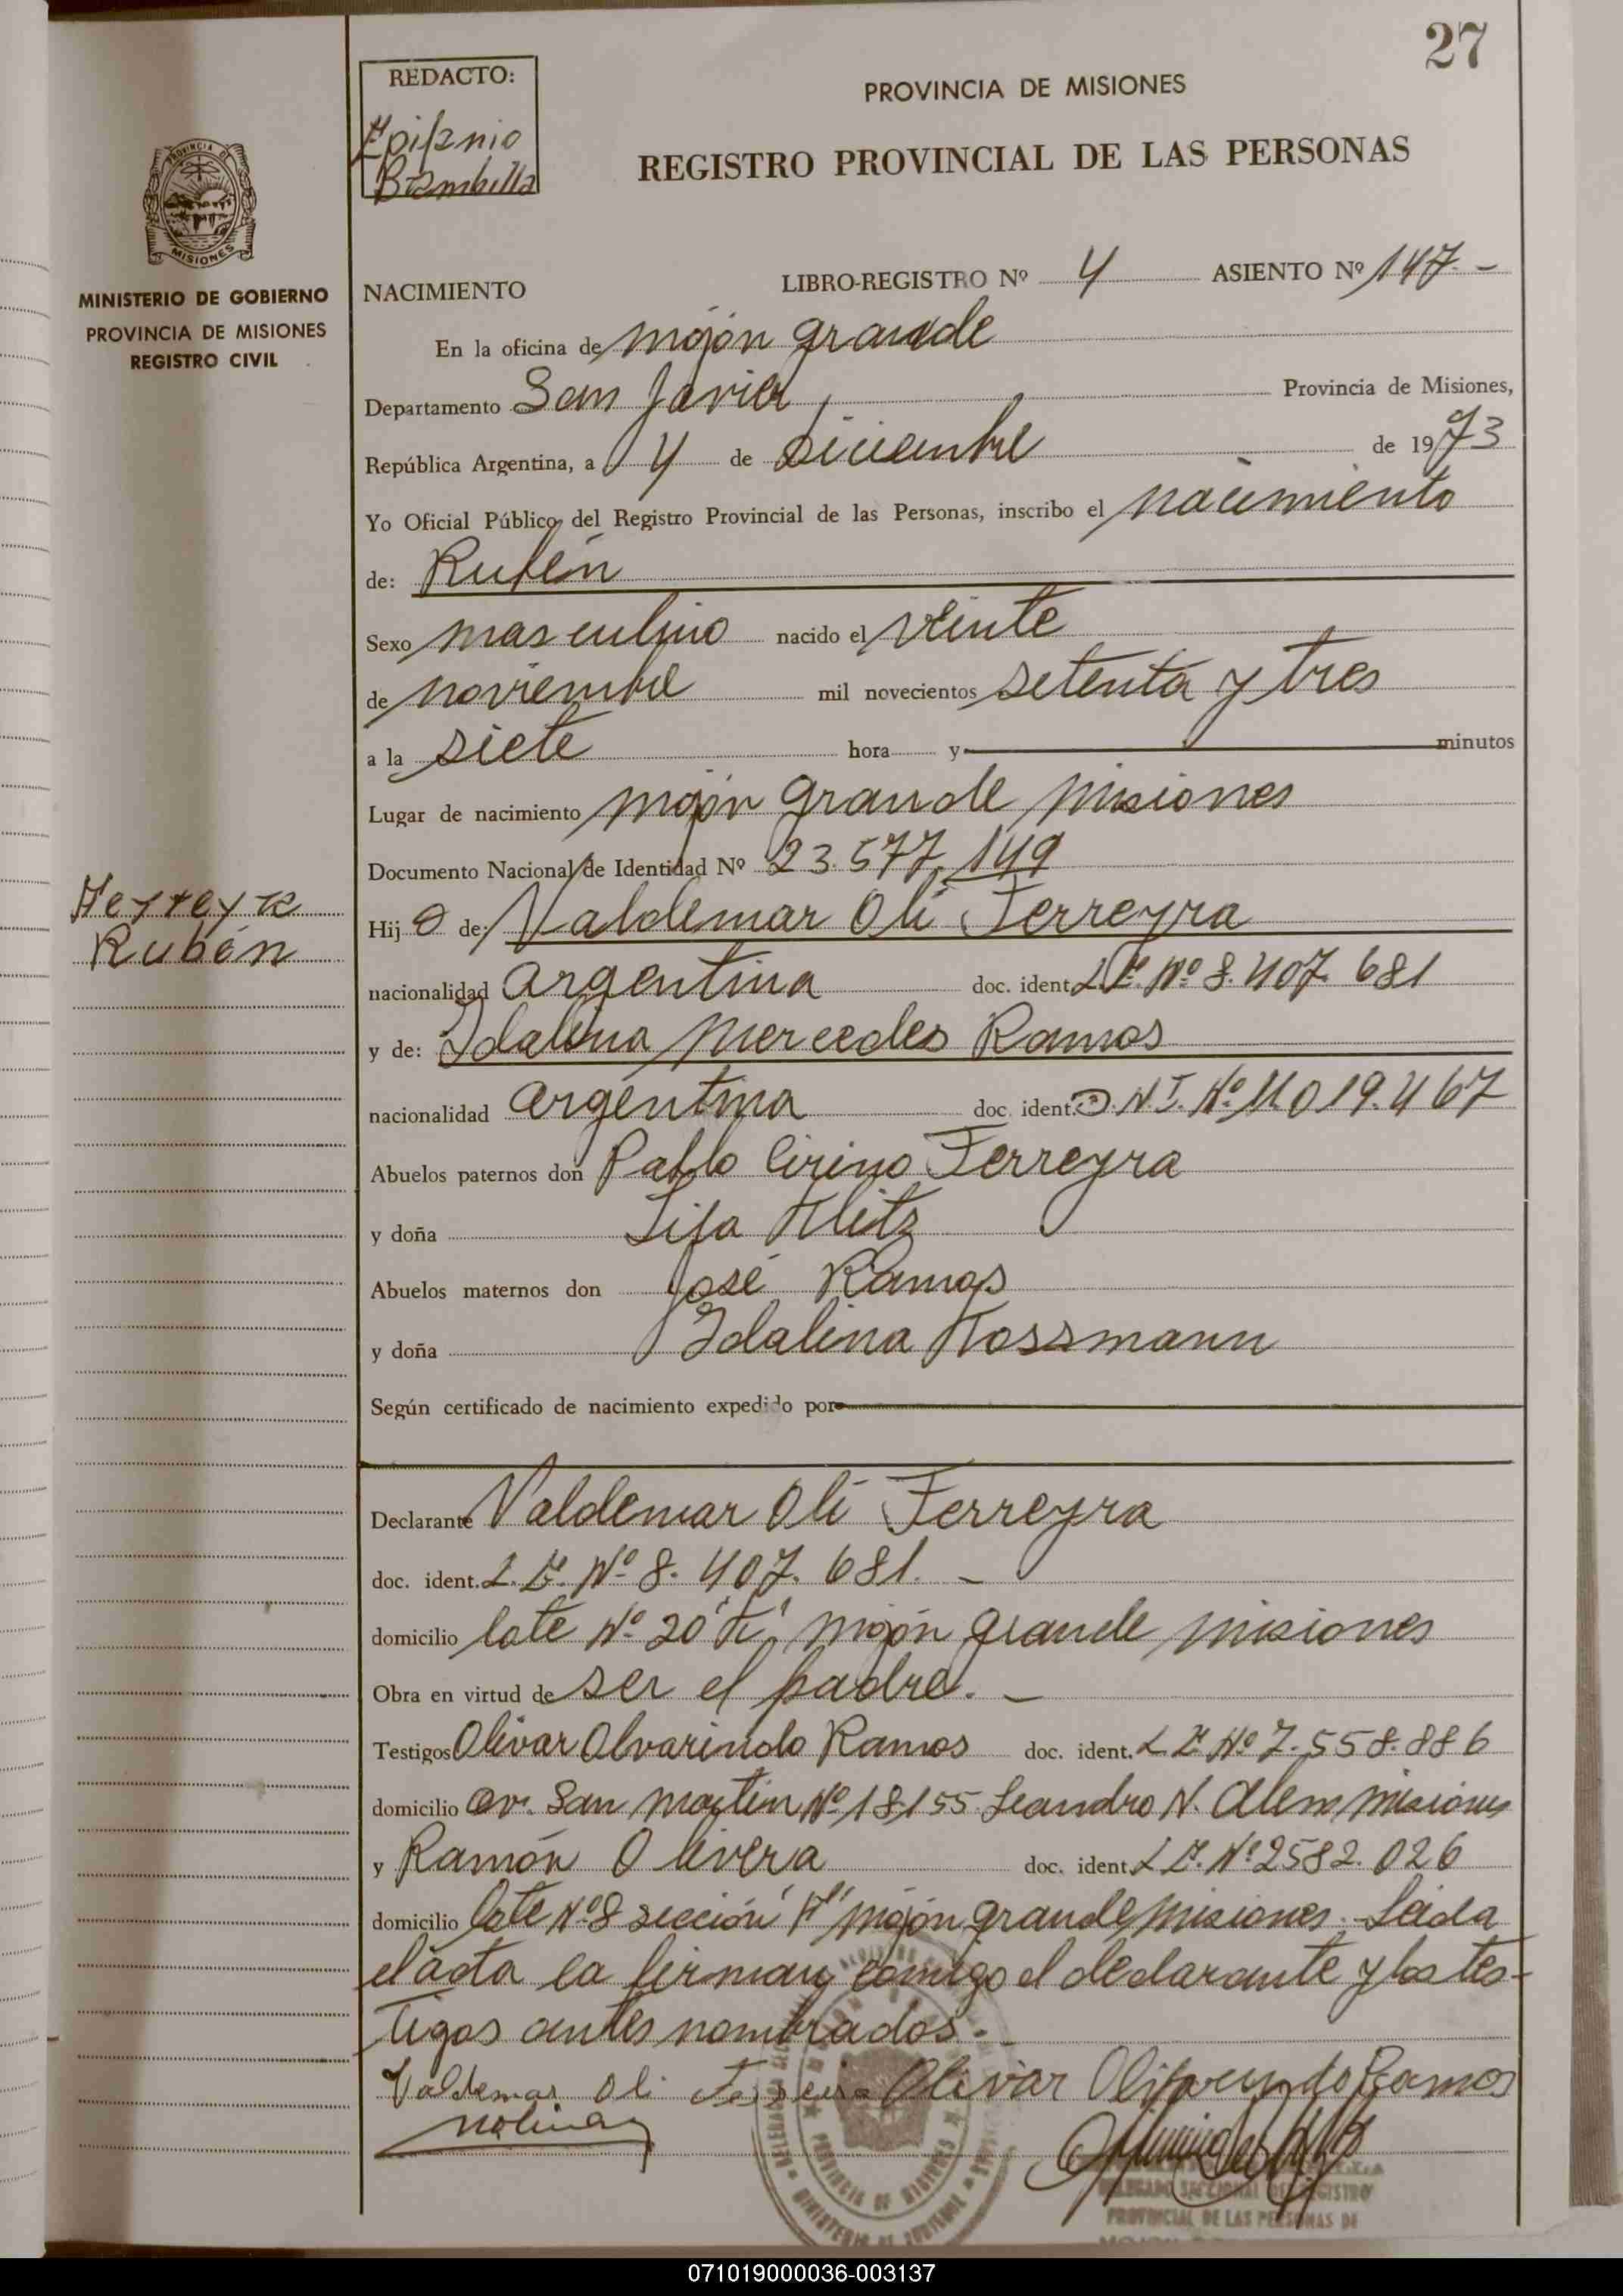 27
REDACTO:
Epifanio
Brambilla
PROVINCIA DE MISIONES
REGISTRO PROVINCIAL DE LAS PERSONAS
PROVINCIA DE
MISIONES
MINISTERIO DE GOBIERNO
PROVINCIA DE MISIONES
REGISTRO CIVIL
NACIMIENTO
LIBRO-REGISTRO Nº 4 ASIENTO Nº 147.-
En la oficina de mojón grande
Departamento San Javier, Provincia de Misiones,
República Argentina, a 4 de Diciembre de 1973
Yo Oficial Público del Registro Provincial de las Personas, inscribo el nacimiento
de: Rubén
Sexo masculino nacido el veinte
de noviembre mil novecientos setenta y tres
a la siete hora y minutos
Lugar de nacimiento mojón grande misiones
Documento Nacional de Identidad Nº 23.577.149
Ferreyra
Rubén
Hijo de: Valdemar Oli Ferreyra
nacionalidad argentina doc. ident. L.E. Nº 8.407.681
y de: Idalina Mercedes Ramos
nacionalidad argentina doc. ident. D.N.I. Nº 11.019.467
Abuelos paternos don Pablo Cirino Ferreyra
y doña
Abuelos maternos don José Ramos
y doña Idalina Kossmann
Según certificado de nacimiento expedido por
Declarante Valdemar Oli Ferreyra
doc. ident. L.E. Nº 8.407.681.-
domicilio lote Nº 20 mojón grande misiones
Obra en virtud de ser el padre.-
Testigos Olivar Alvarindo Ramos doc. ident. L.E. Nº 7.558.886
domicilio av. San martin Nº 18155 Leandro N. Alem misiones
y Ramón Olivera doc. ident. L.E. Nº 2582.026
domicilio lote Nº 8 sección mojón grande misiones. Leida
el acta la firman comigo el declarante y los tes-
tigos antes nombrados.-
Valdemar Oli Ferreira Olivar Ramos
DELEGADO SECCIONAL DEL REGISTRO
PROVINCIAL DE LAS PERSONAS DE
PROVINCIA DE MISIONES
MINISTERIO DE GOBIERNO
071019000036-003137